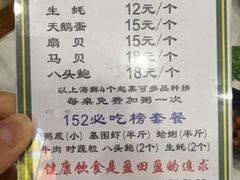 生 蚝 12元/个
天鹅蛋 15元/个
扇 贝 15元/个
马 贝 18元/个
八头鲍 18元/个
以上海鲜4个起蒸可多品种拼
每桌免费加粥一次
152必吃榜套餐
粥底(小) 基围虾(半斤) 蛤蜊(半斤)
牛肉 时蔬粒 八头鲍(2个) 生蚝(2个)
健康饮食是盈田盈的追求